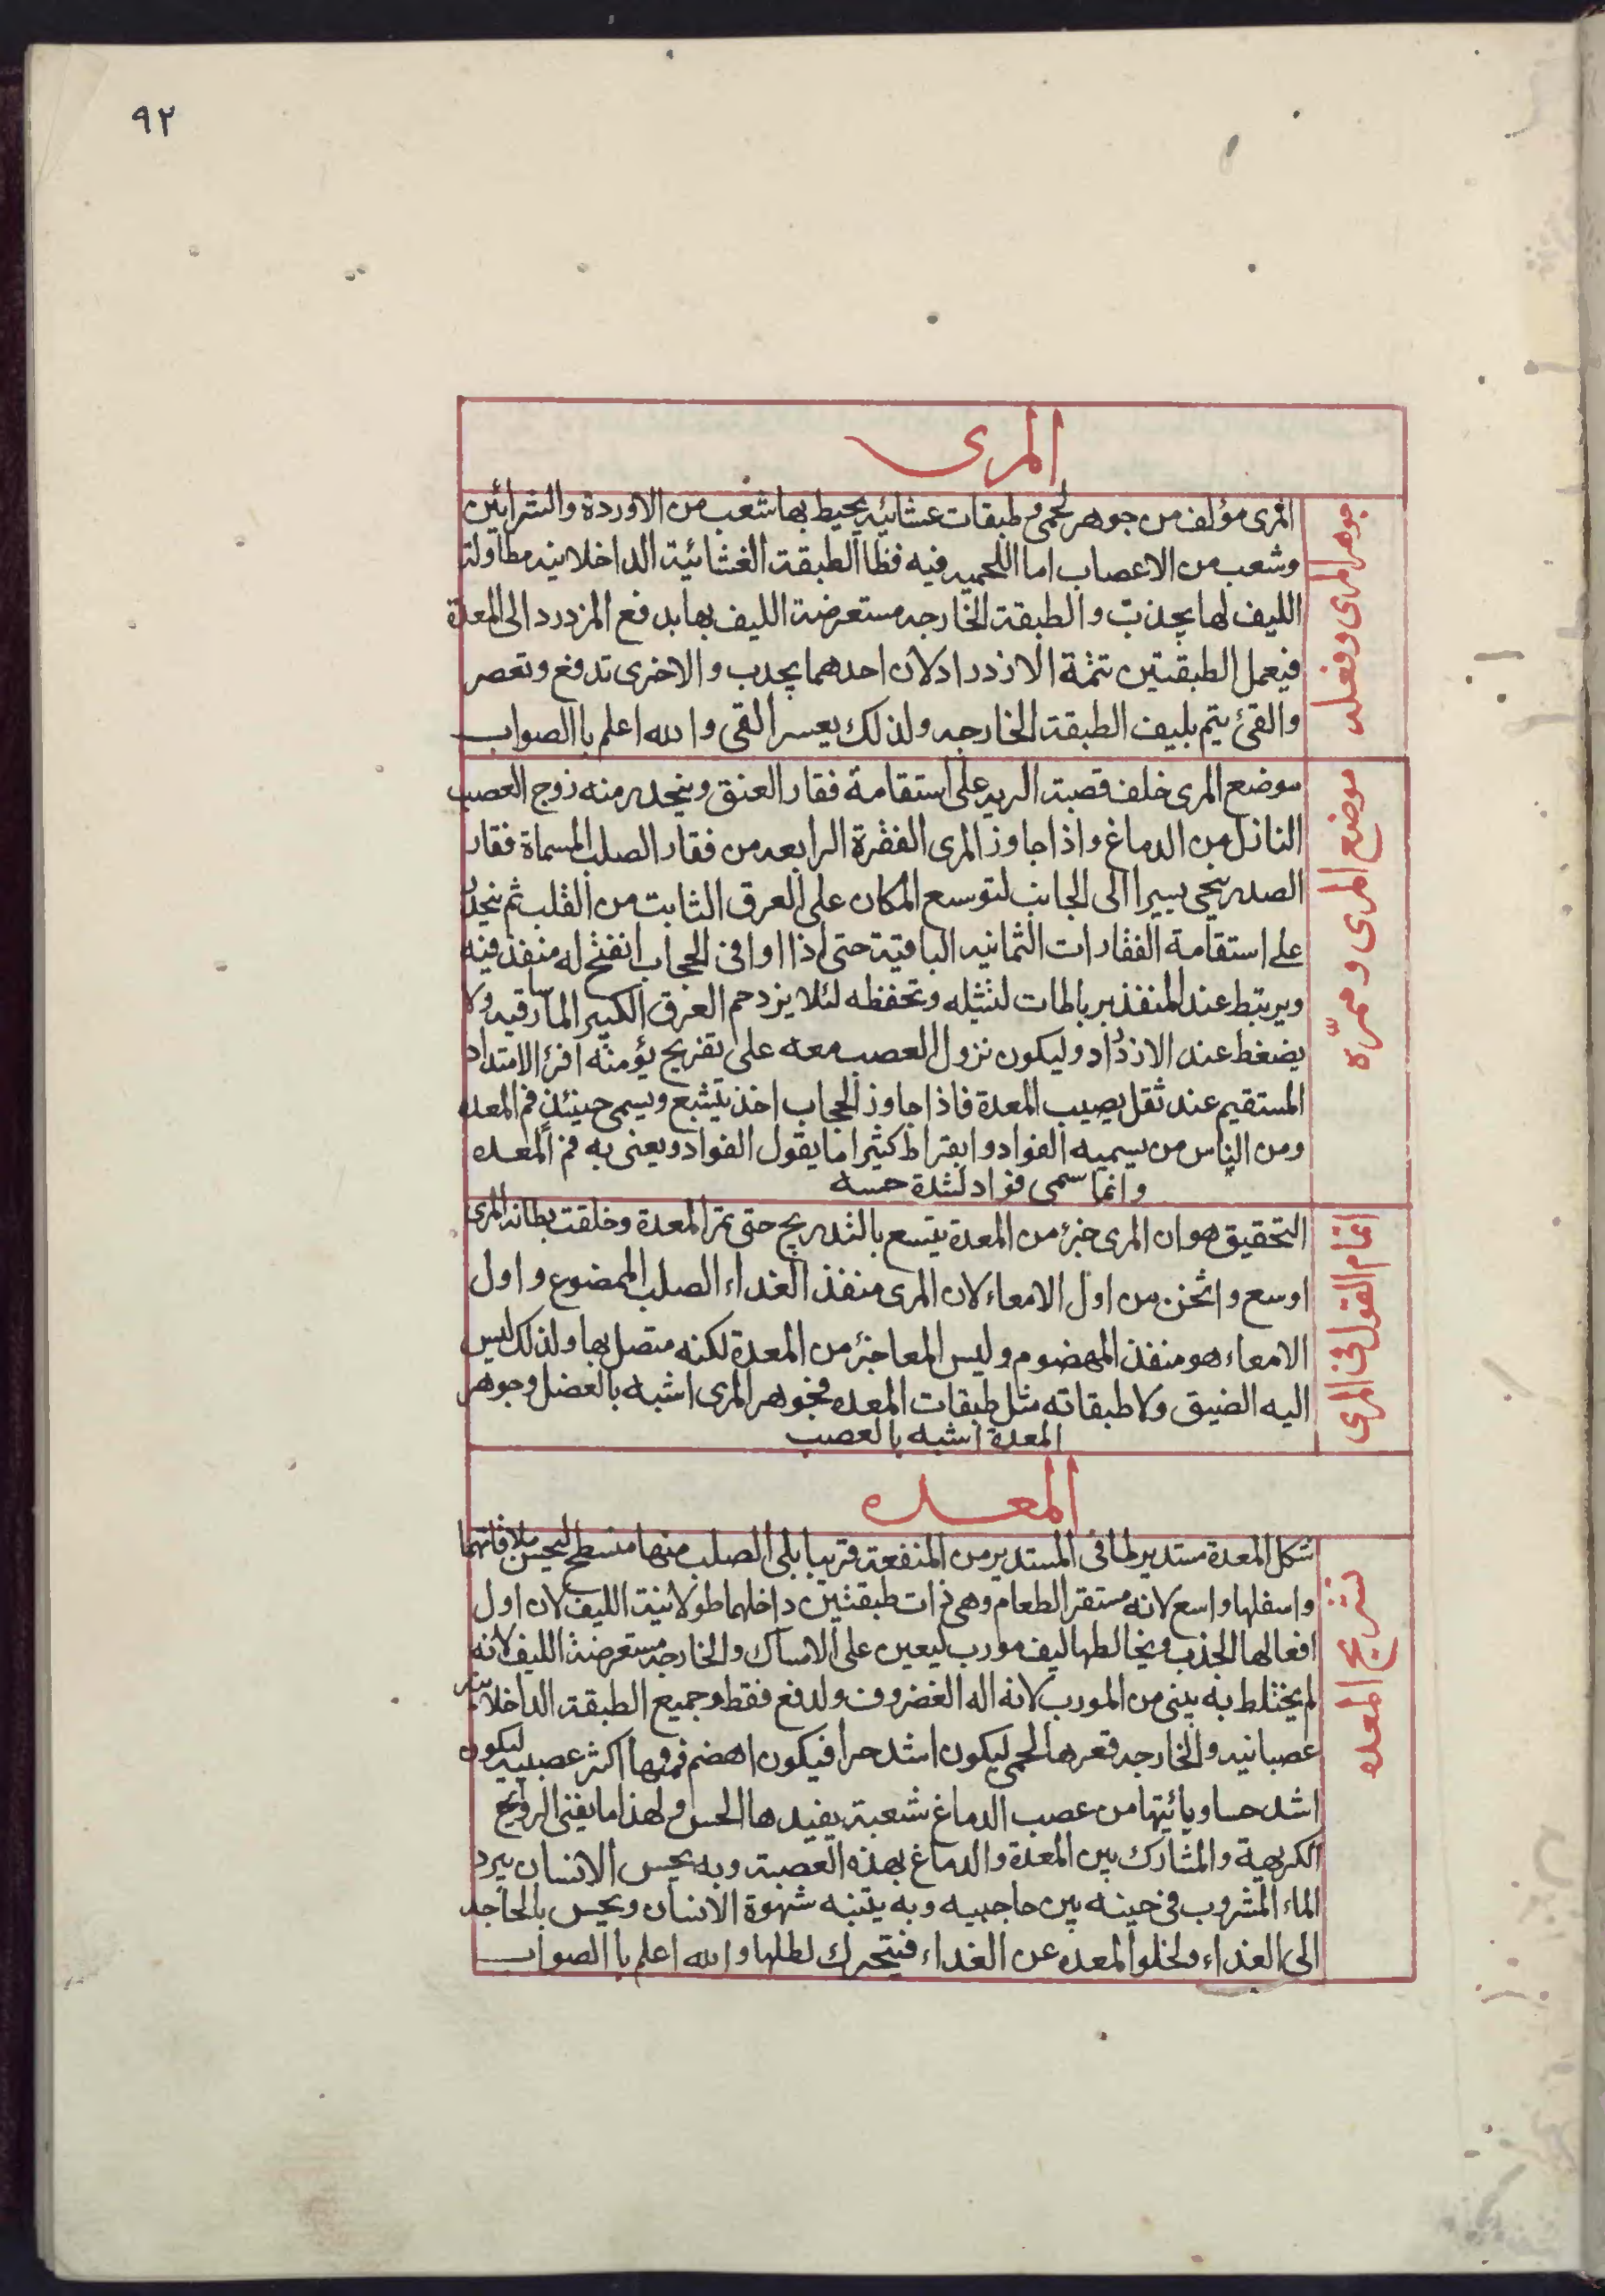 ٩٢
المرى
جوهر المرى وفعله
المرى مؤلف من جوهر لحمى و طبقات عشائيه يحيط بها شعب من الاوردة والشرائين
وشعب من الاعصاب اما اللحميه فيه فظا الطبقة الغشائية الداخلانيه مطاولة
الليف لها يجذب والطبقة الخارجه مستعرضة الليف بها بدفع المزدرد الى المعدة
فيعمل الطبقتين تتمة الازدراد لان احدهما يجدب والاخرى تدفع وتعصر
والقئ يتم بليف الطبقة الخارجه ولذلك يعسر القى والله اعلم باالصواب
موضع المرى وممرّه
موضع المرى خلف قصبة الريه على استقامة فقار العنق وينحدر منه زوج العصب
النازل من الدماغ واذا جاوز المرى الفقرة الرابعه من فقار الصلب المسماة فقار
الصدر ينحى يسيرا الى الجانب لتوسع المكان على العرق الثابت من القلب ثم ينحدر
على استقامة الفقارات الثمانيه الباقية حتى اذا اوافى الحجاب انفتح له منفذ فيه
ويرتبط عند المنفذ برباطات لتثيله وتحفظه لئلا يزدحم العرق الكبير المار فيه ولا
يضغط عند الازدراد وليكون نزول العصب معه على تفريج يؤمنه افرئ الامتداد
المستقيم عند ثقل يصيب المعدة فاذا جاوز الحجاب اخذ يتشبع ويسمى حينئذٍ فم المعده
ومن الناس من يسميه الفواد وابقراط كثيرا ما يقول الفواد ويعنى به فم المعده
وانما سمى فواد لشدة حسه
اتمام القول فى المرى
التحقيق هو ان المرى جزء من المعدة يتسع بالتدريج حتى تمر المعدة وخلقت بطانة المرى
اوسع واثخن من اول الامعاء لان المرى منفذ الغداء الصلب الممضوع واول
الامعاء هو منفذ المهضوم وليس المعا جزء من المعدة لكنه متصل بها ولذلك ليس
اليه الضيق ولا طبقاته مثل طبقات المعده فجوهر المرى اشبه بالعضل وجوهر
المعدة اشبه بالعصب
المعده
تشريح المعده
شكل المعدة مستدير لما فى المستدير من المنفعة قريبا يلى الصلب منها منسطح ليحسن ملاقاتهما
واسفلها واسع لانه مستقر الطعام وهى ذات طبقتين داخلهما طولانية الليف لان اول
افعالها الجذب ويخالطها ليف مورب ليعين على الامساك والخارجه مستعرضة الليف لانه
لم يختلط به شئ من المورب لانه اله الغضروف ولدفع فقط وجميع الطبقة الداخلانيه
عصبانيه والخارجه قعرها لحمى ليكون اشد حرا فيكون اهضم وفمها اكثر عصبيه ليكون
اشد حسا ويأتيها من عصب الدماغ شعبة يفيدها الحس ولهذا ما يغثى الروائح
الكريهة والمشارك بين المعدة والدماغ بهذه العصبة وبه يحس الانسان ببرد
الماء المشروب فى حينه بين حاجبيه وبه يتنبه شهوة الانسان ويحس بالحاجه
الى الغداء ولخلو المعده عن الغداء فيتحرك لطلبها والله اعلم باالصواب